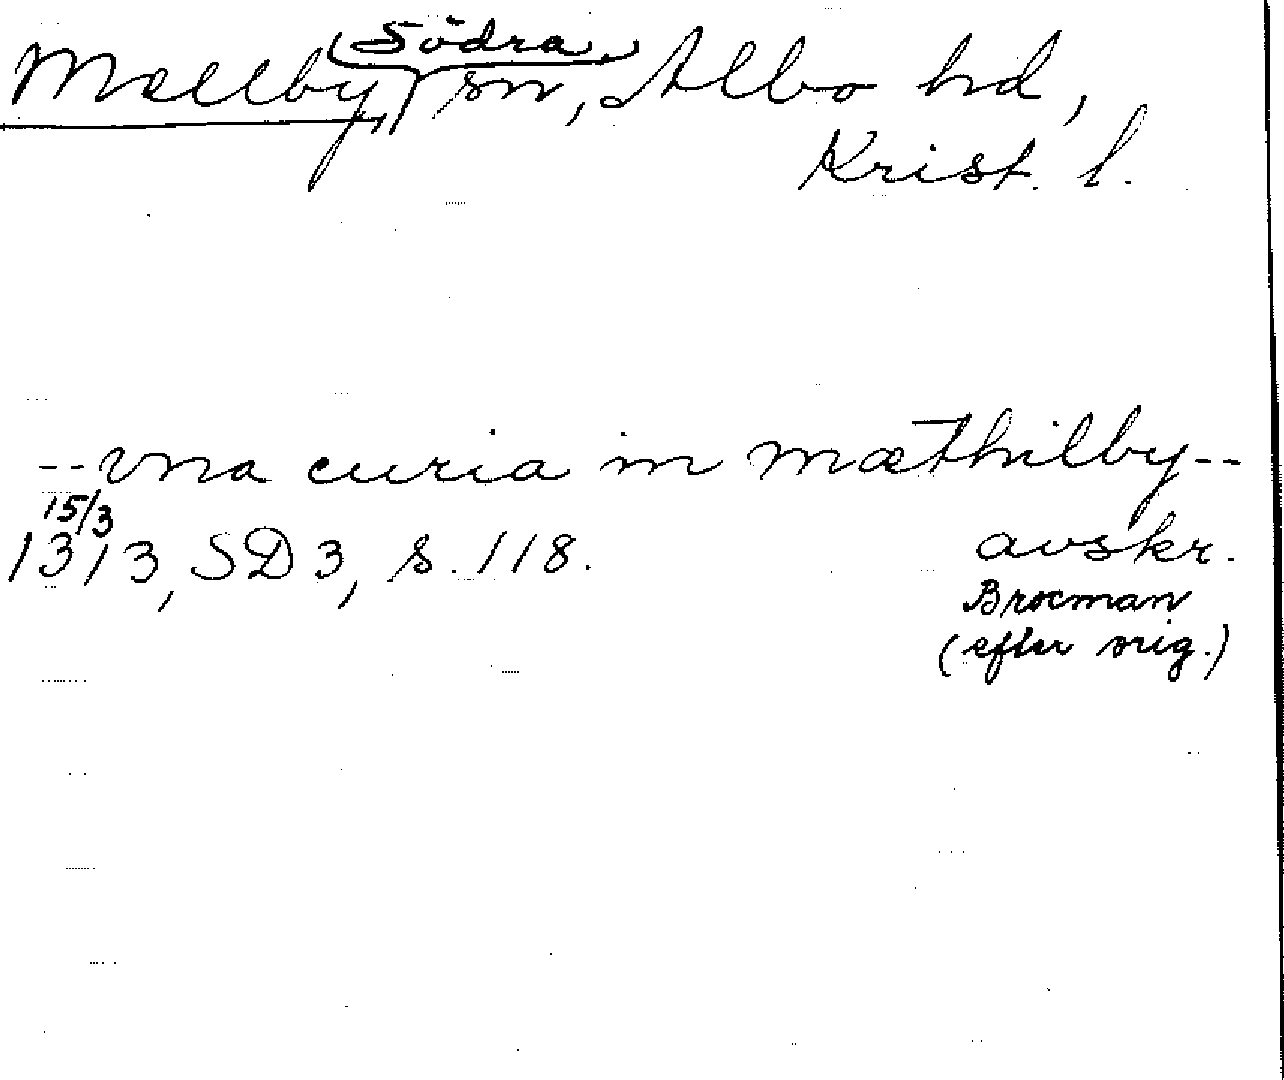 Mællby, Södra, sn, Albo hd,
Krist. l.
--vna curia in mæthilby--
15/3
1313, SD 3, s. 118.
avskr.
Brocman
(efter orig.)